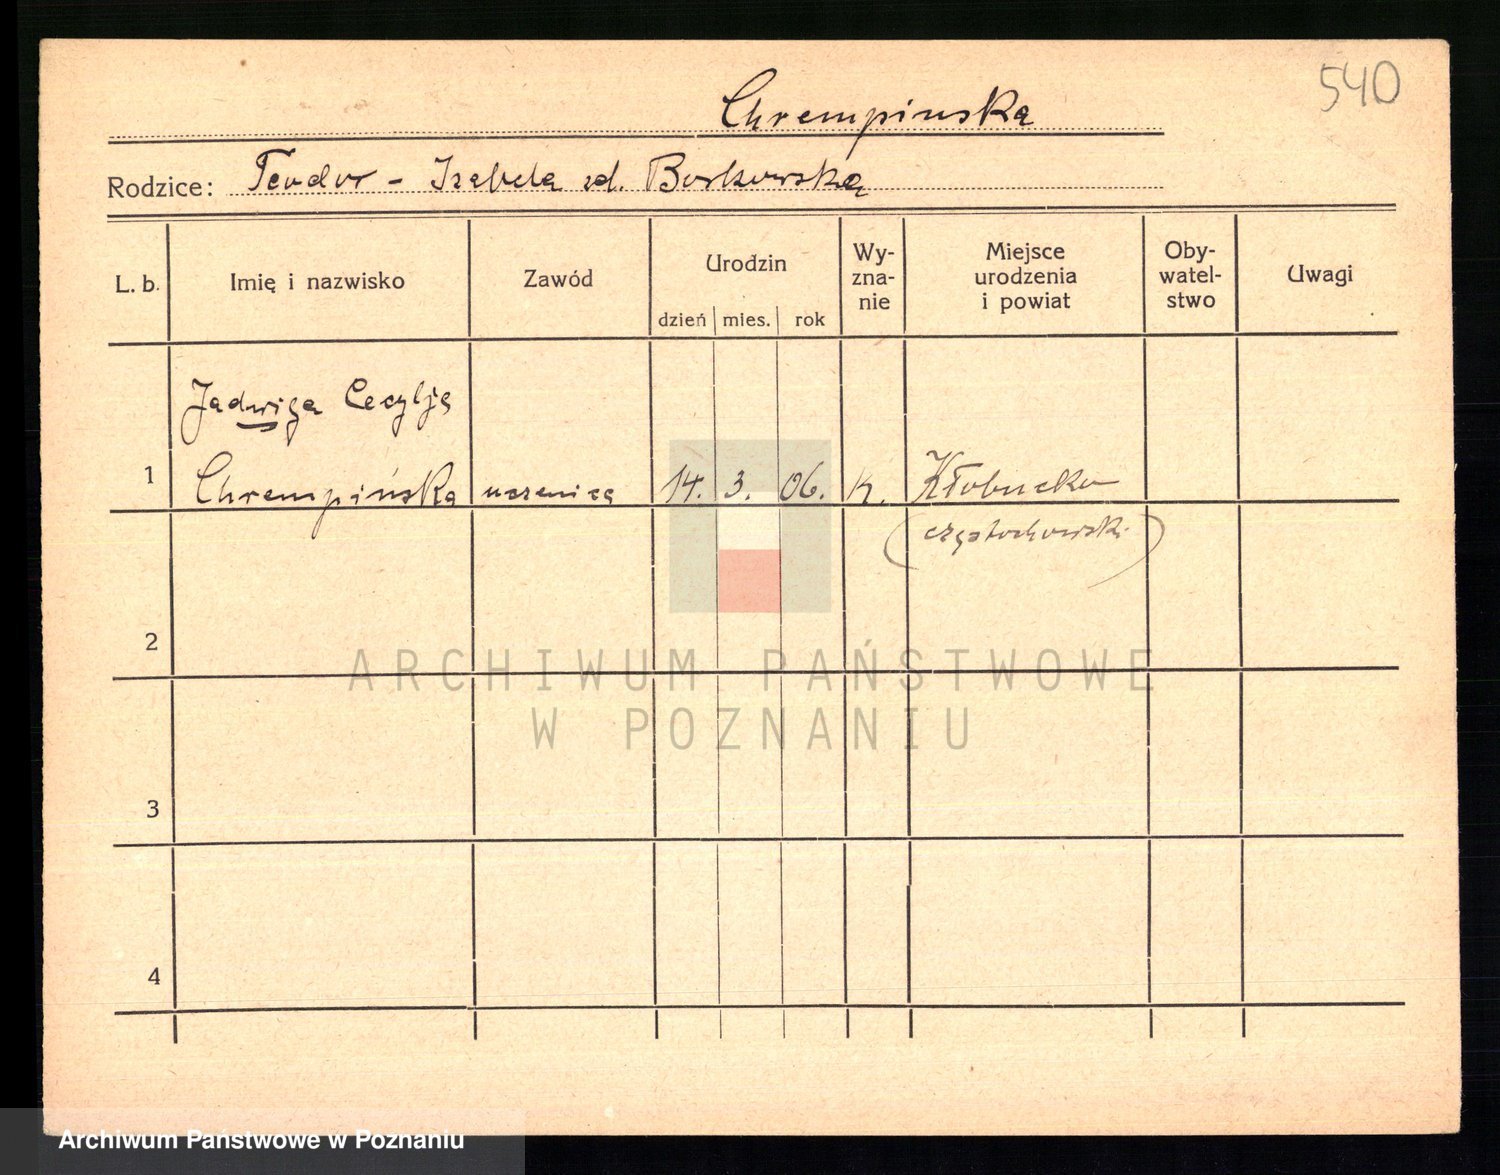 540
Chrempinska
Rodzice: Teodor - Izabela zd. Borkowska
L. b. Imię i nazwisko Zawód Urodzin dzień mies. rok Wy-zna-nie Miejsce urodzenia i powiat Oby-watel-stwo Uwagi
Jadwiga Cecylja
1 Chrempińska uczenica 14. 3. 06. k. Kłobucko
(częstochowski)
2
ARCHIWUM PAŃSTWOWE
W POZNANIU
3
4
Archiwum Państwowe w Poznaniu